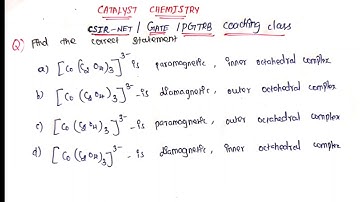 CATALYST CHEMISTRY
CSIR-NET / GATE / PGTRB coaching class
Q) Find the correct statement
a) [Co(C2O4)3]3- is paramagnetic, inner octahedral complex
b) [Co(C2O4)3]3- is diamagnetic, outer octahedral complex
c) [Co(C2O4)3]3- is paramagnetic, outer octahedral complex
d) [Co(C2O4)3]3- is diamagnetic, inner octahedral complex